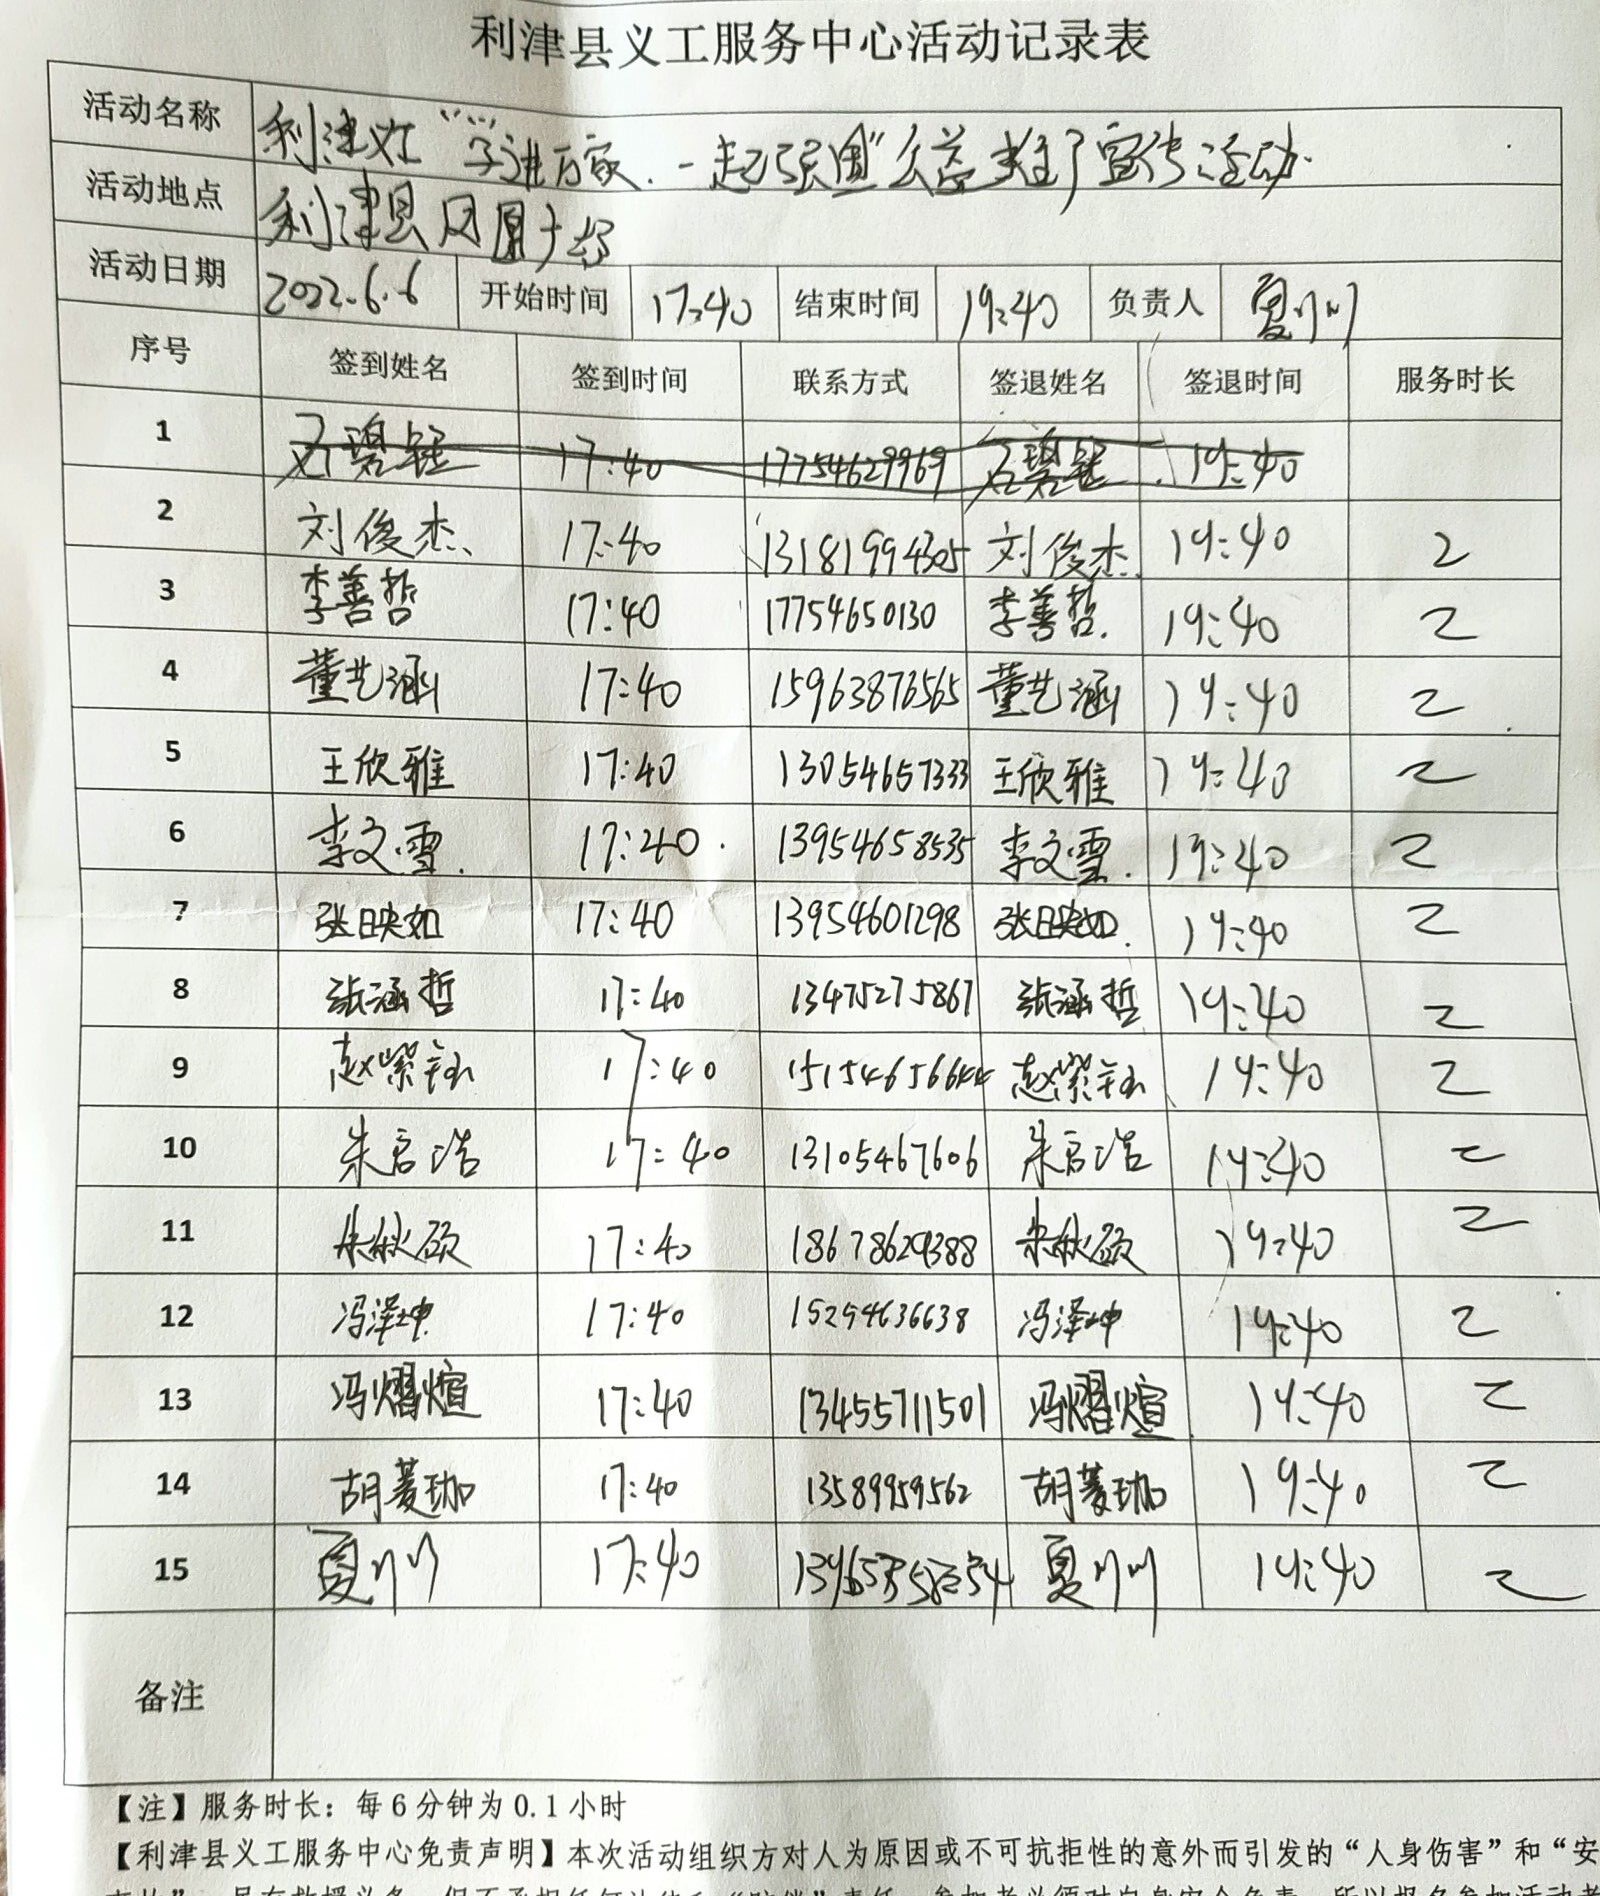 利津县义工服务中心活动记录表
活动名称 利津义工"学进万家、一起强国"公益推广宣传活动
活动地点 利津县凤凰广场
活动日期 2022.6.6 开始时间 17:40 结束时间 19:40 负责人 夏
序号 签到姓名 签到时间 联系方式 签退姓名 签退时间 服务时长
1 石碧钰 17:40 17754629969 石碧钰 19:40
2 刘俊杰 17:40 13181994305 刘俊杰 19:40 2
3 李善哲 17:40 17754650130 李善哲 19:40 2
4 董艺涵 17:40 15963876565 董艺涵 19:40 2
5 王欣雅 17:40 13054657333 王欣雅 19:40 2
6 李文雪 17:40 13954658535 李文雪 19:40 2
7 张映如 17:40 13954601298 张映如 19:40 2
8 张涵哲 17:40 13475275867 张涵哲 19:40 2
9 赵紫钰 17:40 15154656644 赵紫钰 19:40 2
10 朱启浩 17:40 13105467606 朱启浩 19:40 2
11 朱秋颀 17:40 18678629388 朱秋颀 19:40 2
12 冯泽坤 17:40 15254636638 冯泽坤 19:40 2
13 冯熠煊 17:40 13455711501 冯熠煊 19:40 2
14 胡菱珈 17:40 13589959562 胡菱珈 19:40 2
15 夏 17:40 夏 19:40 2
备注
【注】服务时长：每6分钟为0.1小时
【利津县义工服务中心免责声明】本次活动组织方对人为原因或不可抗拒性的意外而引发的“人身伤害”和“安